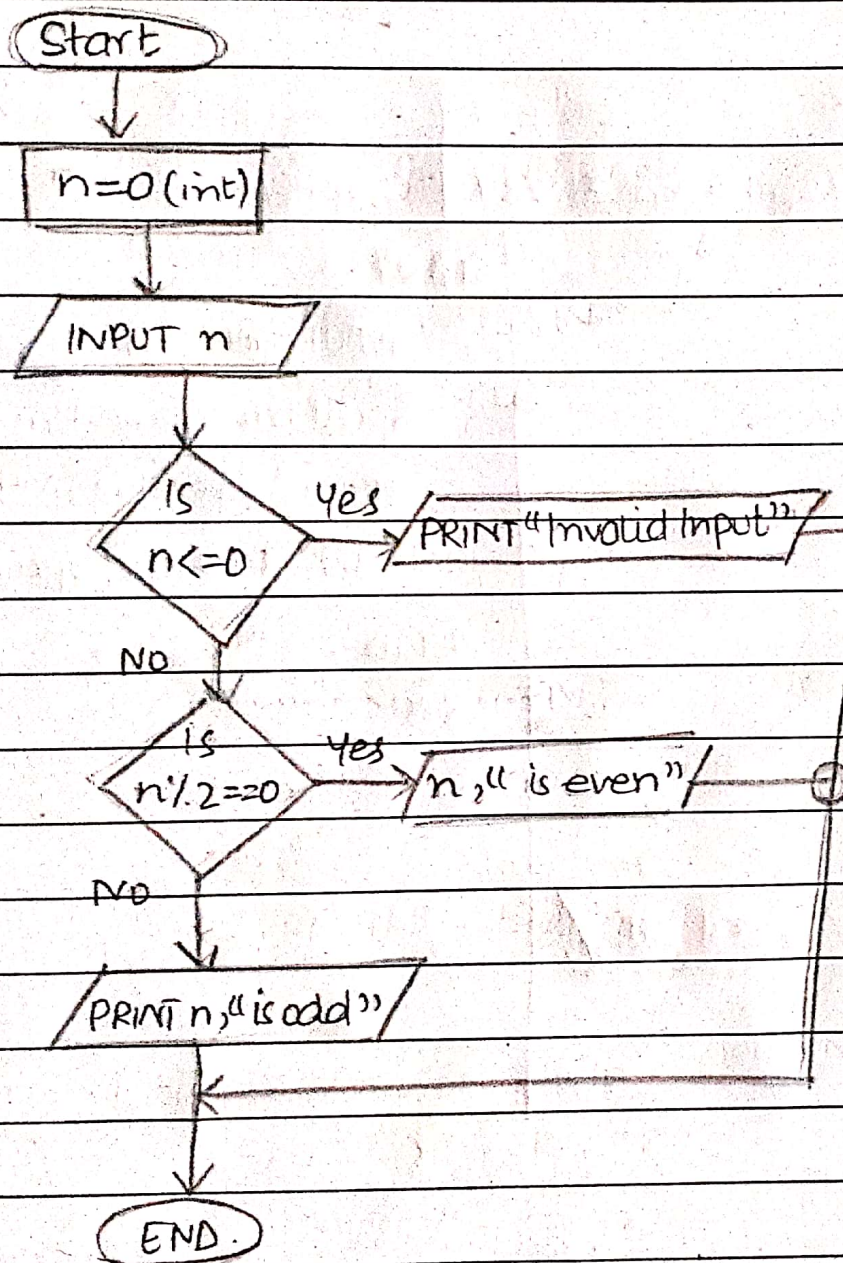 Start
n=0 (int)
INPUT n
IS
n<=0
Yes
PRINT "Invalid Input"
NO
is
n%2==0
Yes
n, " is even"
NO
PRINT n, "is odd"
END.